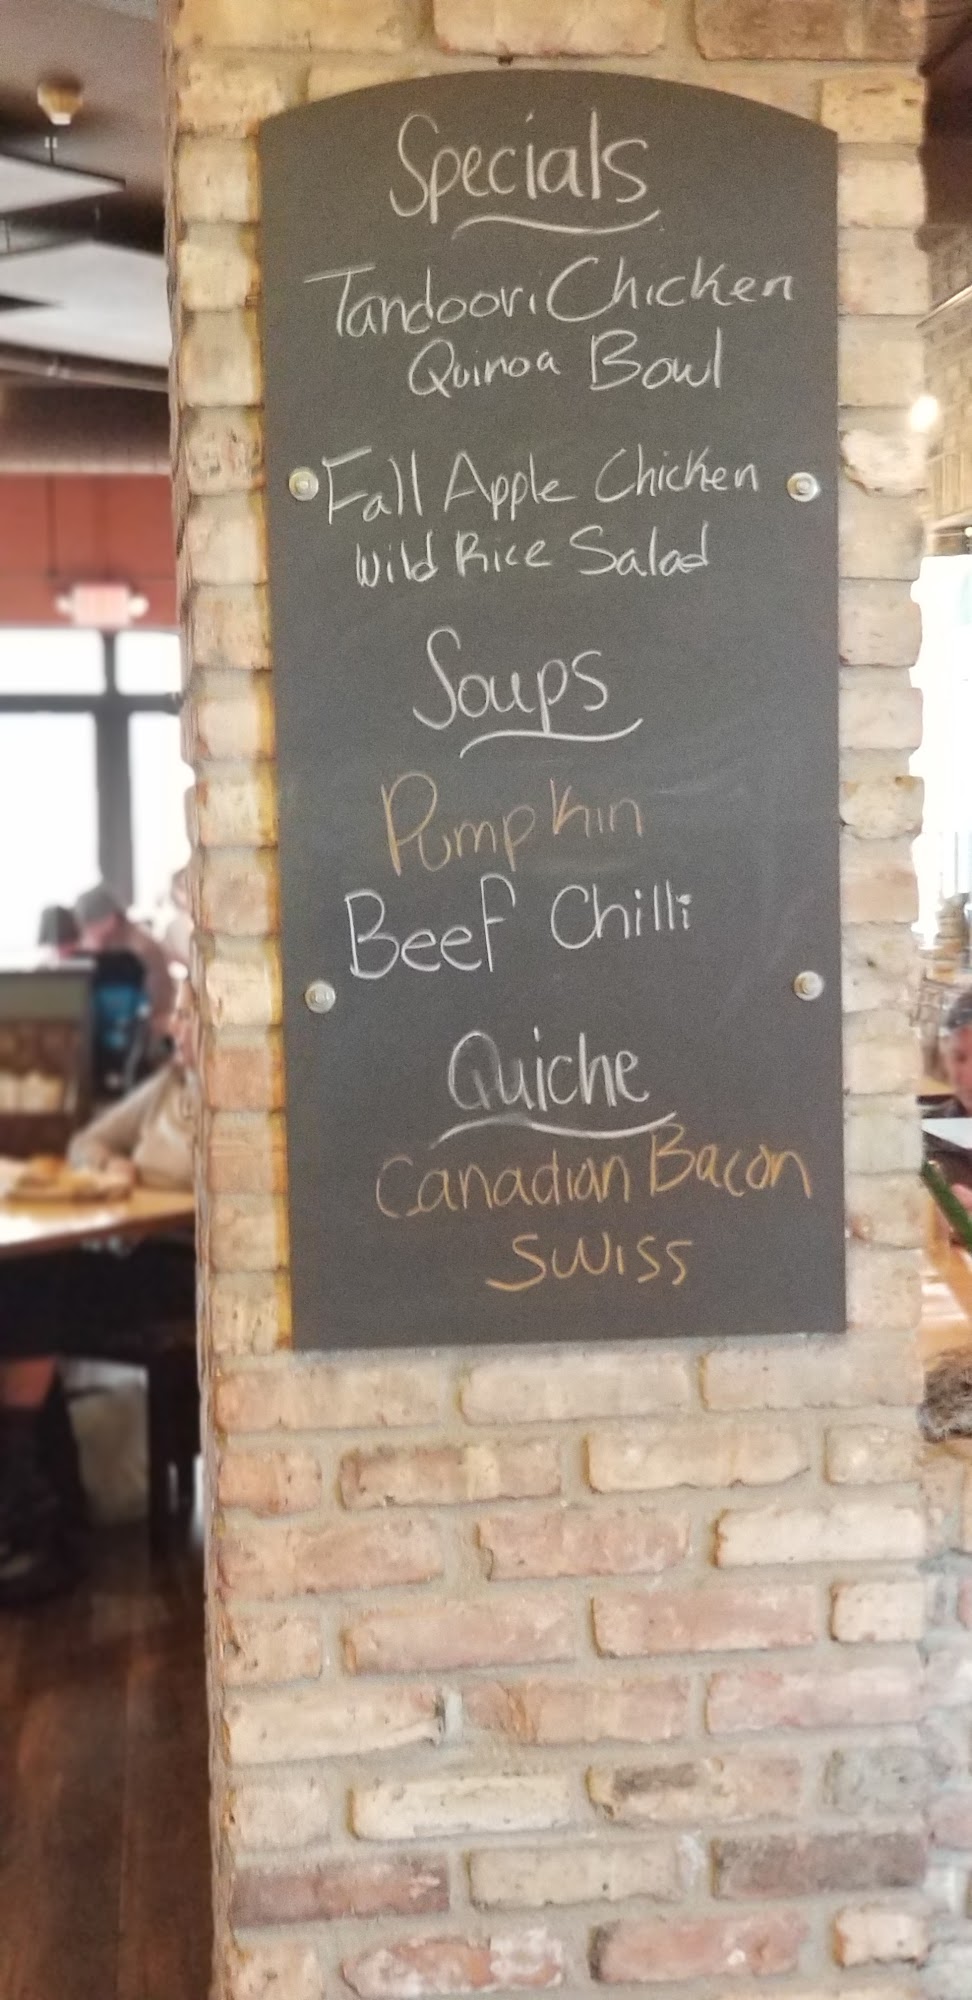 Specials
Tandoori Chicken
Quinoa Bowl
Fall Apple Chicken
Wild Rice Salad
Soups
Pumpkin
Beef Chilli
Quiche
Canadian Bacon
Swiss